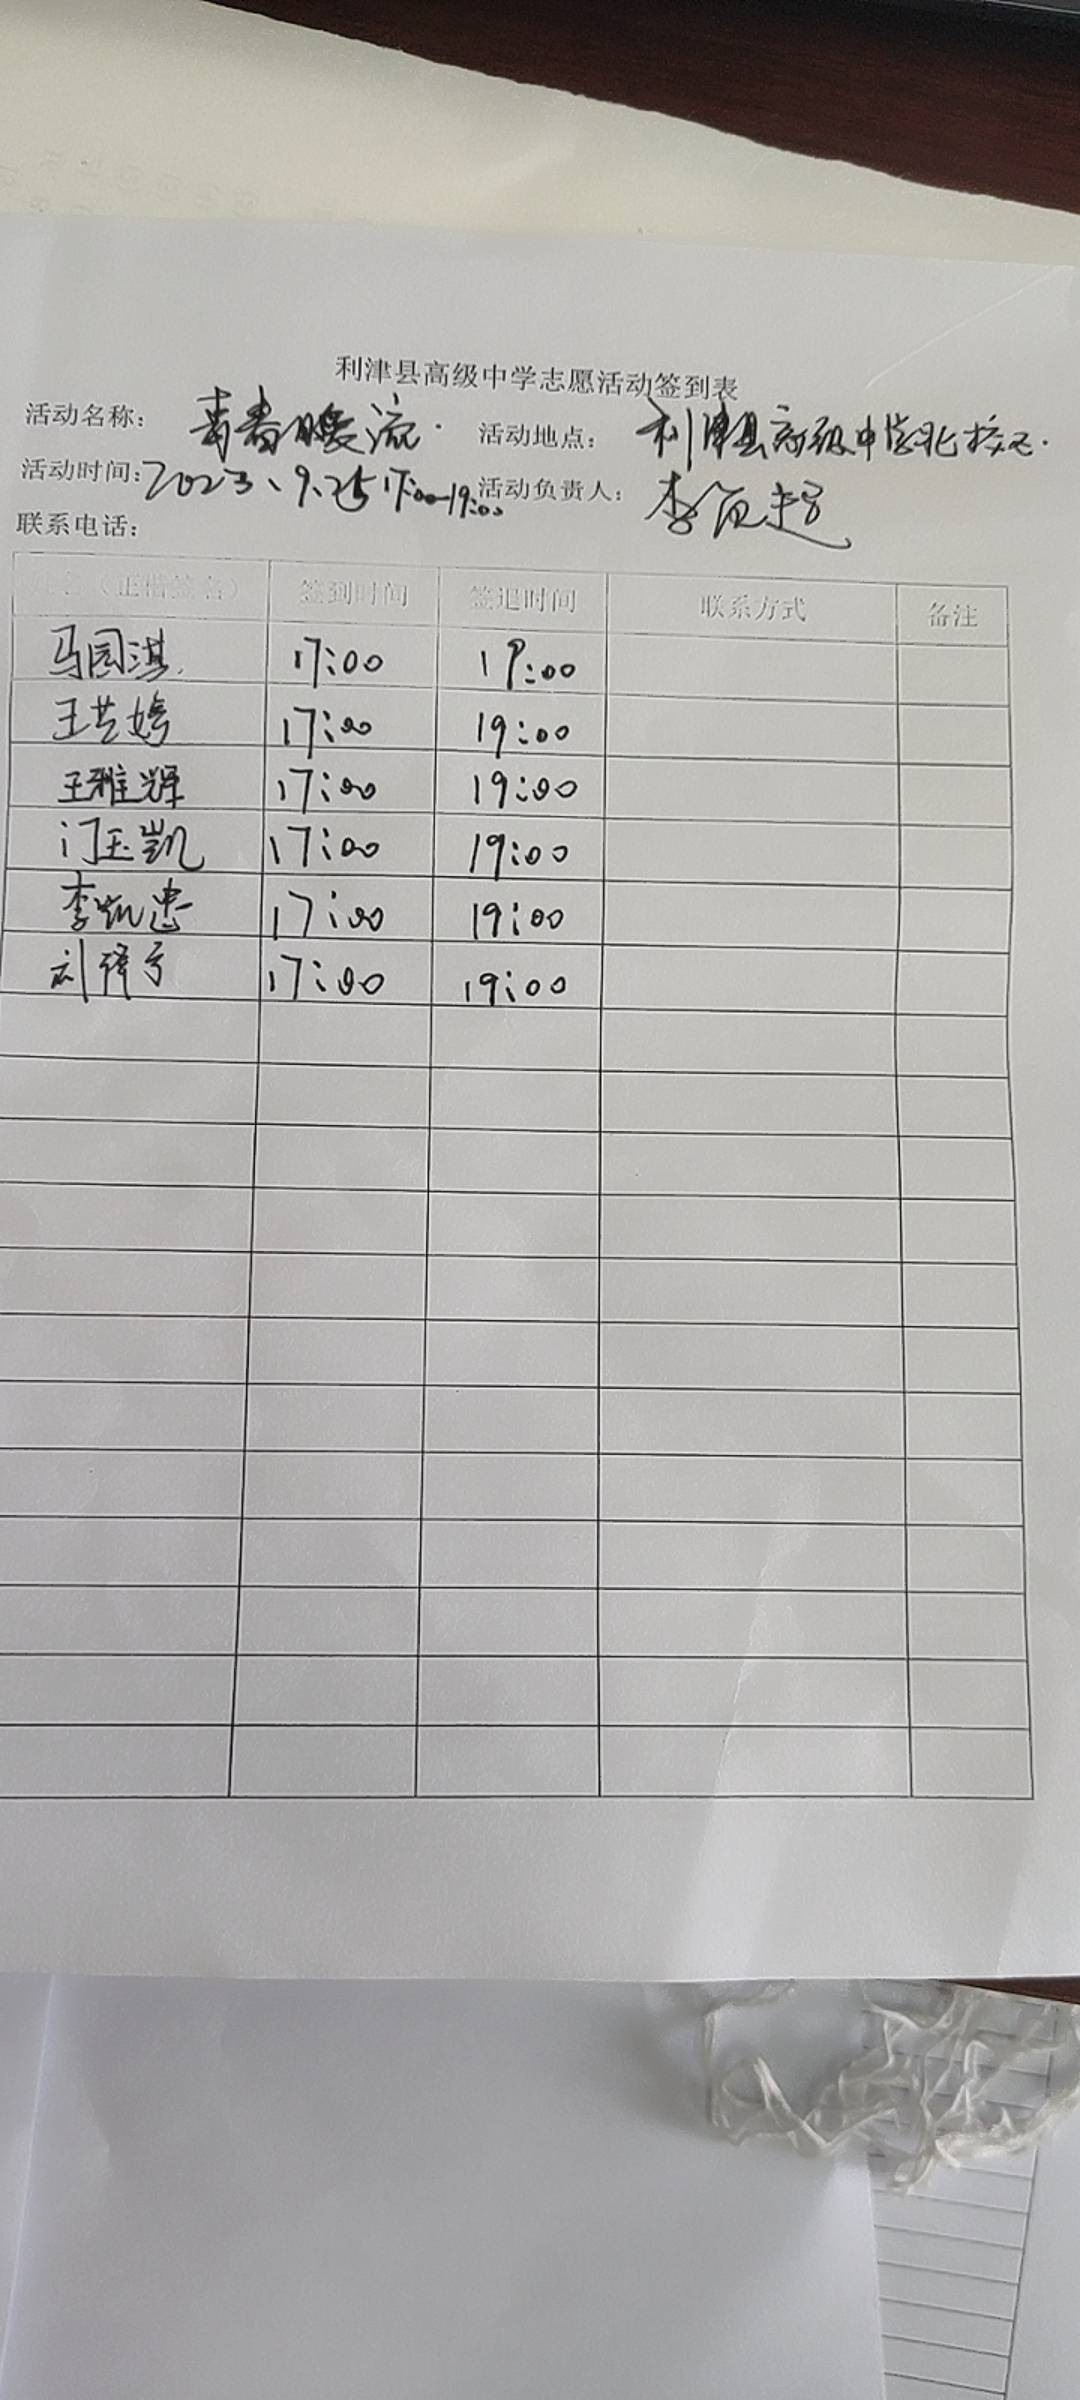 利津县高级中学志愿活动签到表
活动名称： 青春暖流. 活动地点： 利津县高级中学北校区.
活动时间: 2023、9.25 17:00-19:00 活动负责人： 李
联系电话：
姓名（正楷签名） 签到时间 签退时间 联系方式 备注
马园淇. 17:00 19:00
王艺婷 17:00 19:00
王雅辉 17:00 19:00
门玉凯 17:00 19:00
李凯忠 17:00 19:00
刘 17:00 19:00